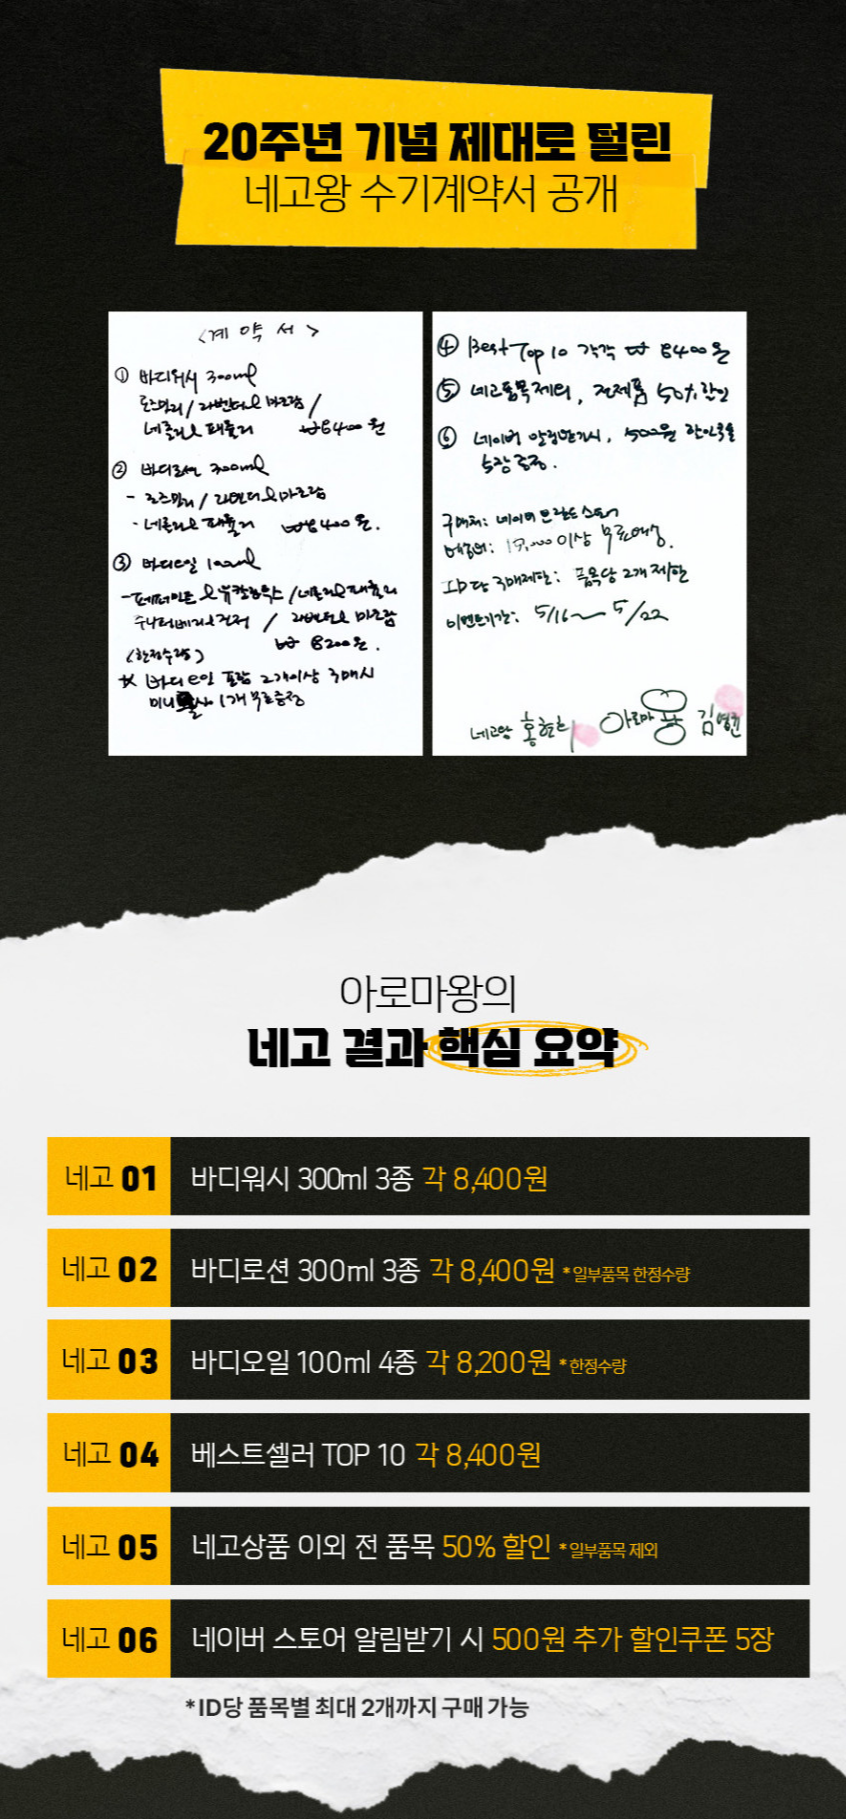 20주년 기념 제대로 털린
네고왕 수기계약서 공개
<계 약 서>
① 바디워시 300ml
로즈힐리 / 라벤더&마조람 /
네롤리&패츌리 ₩8400원
② 바디로션 300ml
- 로즈힐리 / 라벤더&마조람
- 네롤리&패츌리 ₩8400원.
③ 바디오일 100ml
- 페퍼민트&유칼립투스 / 네롤리&패츌리
/ 라벤더&마조람
₩8200원.
(한정수량)
※ 바디오일 포함 2개이상 구매시
미니 1개 무료증정
④ Best Top 10 각각 ₩8400원
⑤ 네고품목제외, 전제품 50% 할인
⑥ 네이버 알림받기시, 500원 할인쿠폰
5장 증정.
구매처: 네이버 브랜드 스토어
배송비: 이상 무료배송.
ID당 구매제한: 품목당 2개 제한
이벤트기간: 5/16 ~ 5/22
네고왕 홍현희 아로마왕 김영균
아로마왕의
네고 결과 핵심 요약
네고 01 바디워시 300ml 3종 각 8,400원
네고 02 바디로션 300ml 3종 각 8,400원 *일부품목 한정수량
네고 03 바디오일 100ml 4종 각 8,200원 *한정수량
네고 04 베스트셀러 TOP 10 각 8,400원
네고 05 네고상품 이외 전 품목 50% 할인 *일부품목 제외
네고 06 네이버 스토어 알림받기 시 500원 추가 할인쿠폰 5장
*ID당 품목별 최대 2개까지 구매 가능